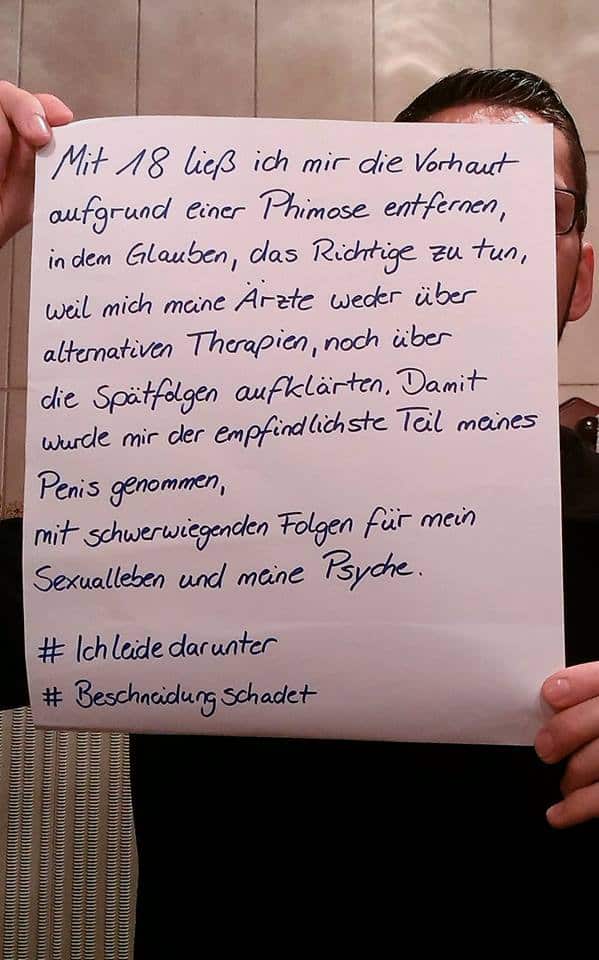 Mit 18 ließ ich mir die Vorhaut
aufgrund einer Phimose entfernen,
in dem Glauben, das Richtige zu tun,
weil mich meine Ärzte weder über
alternativen Therapien, noch über
die Spätfolgen aufklärten. Damit
wurde mir der empfindlichste Teil meines
Penis genommen,
mit schwerwiegenden Folgen für mein
Sexualleben und meine Psyche.
# Ich leide darunter
# Beschneidung schadet